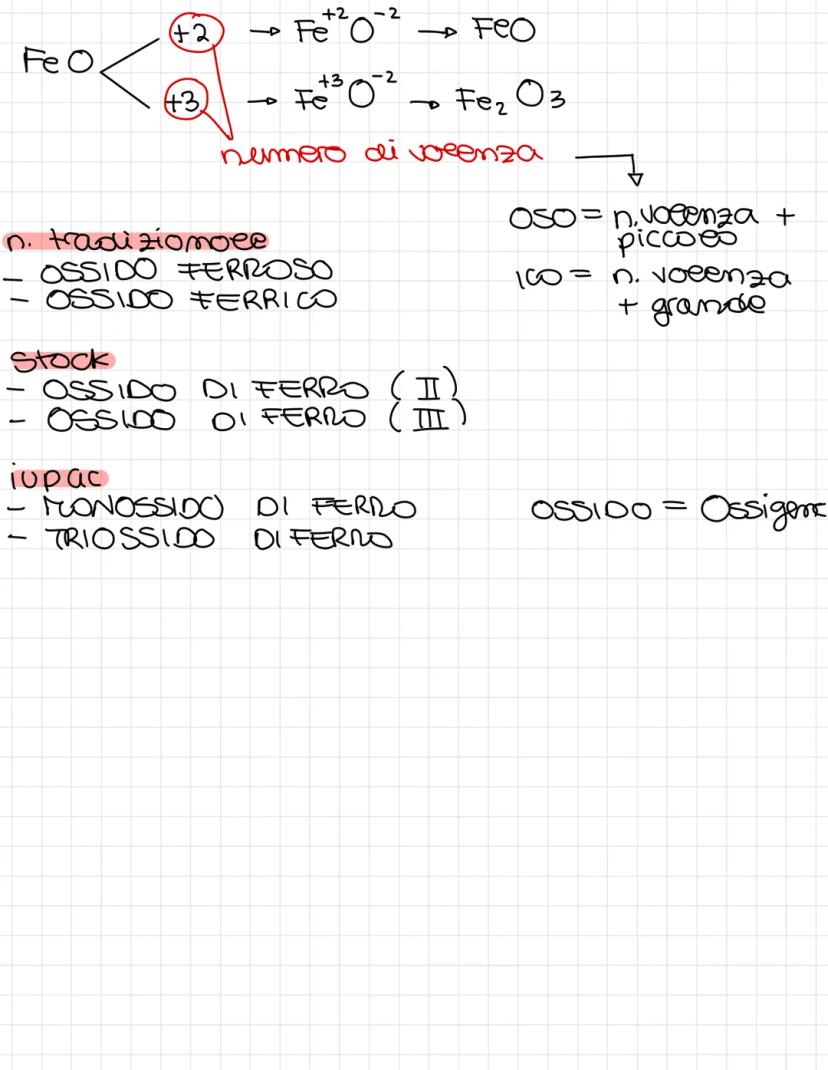 FeO
+2 → Fe⁺²O⁻² → FeO
+3 → Fe⁺³O⁻² → Fe₂O₃
numero di valenza
OSO = n. valenza +
piccolo
ICO = n. valenza
+ grande
n. tradizionale
- OSSIDO FERROSO
- OSSIDO FERRICO
Stock
- OSSIDO DI FERRO (II)
- OSSIDO DI FERRO (III)
iupac
- MONOSSIDO DI FERRO
- TRIOSSIDO DI FERRO
OSSIDO = Ossigeno